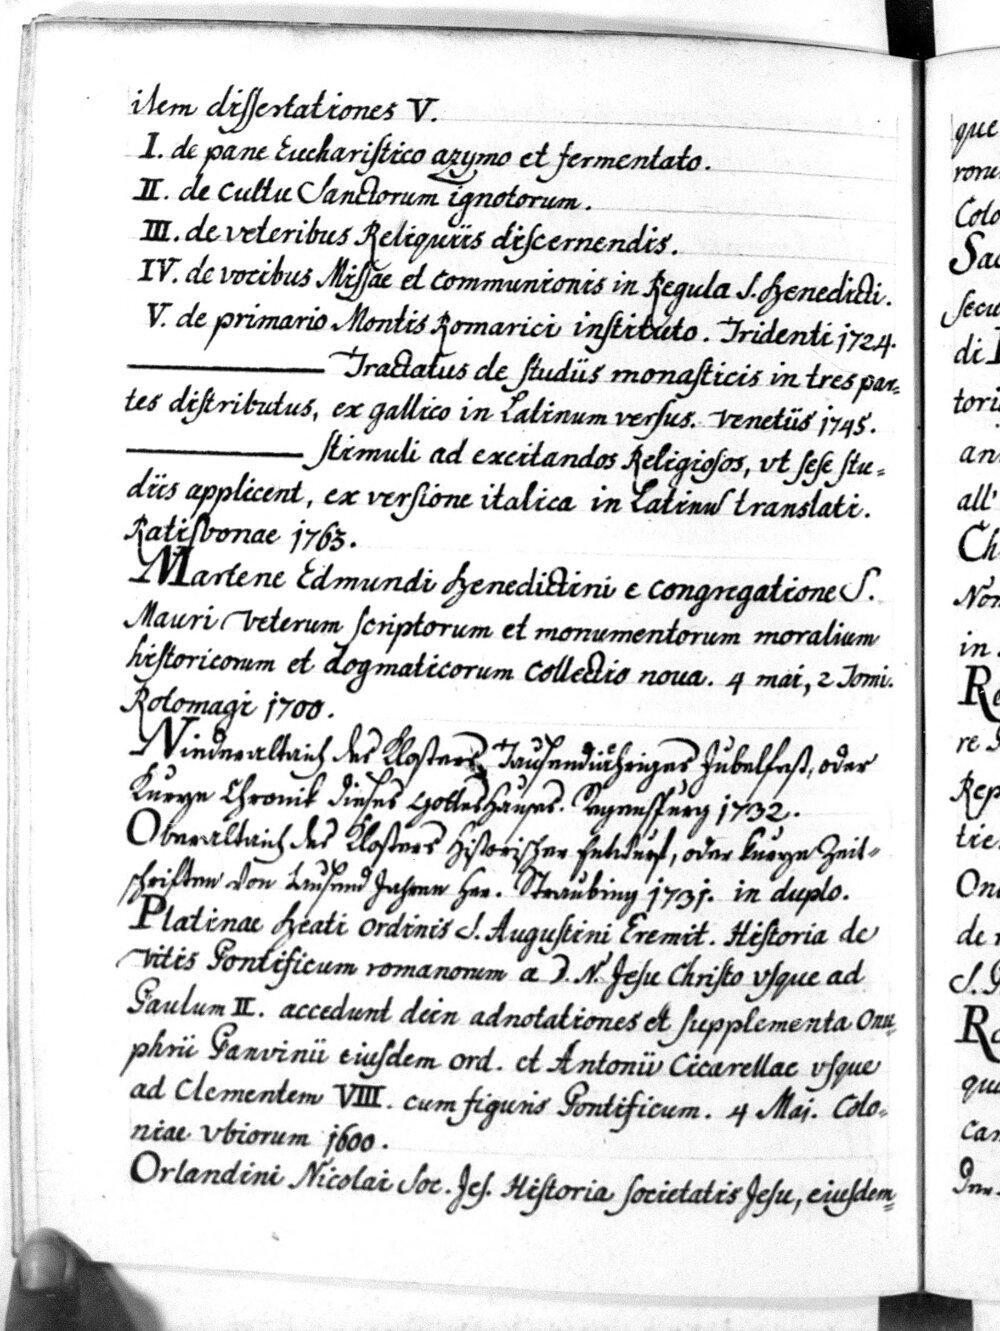 item dissertationes V.
I. de pane Eucharistico azymo et fermentato.
II. de Cultu Sanctorum ignotorum.
III. de veteribus Reliquiis discernendis.
IV. de vocibus Missae et Communionis in Regula S. Benedicti.
V. de primario Montis Romarici instituto. Tridenti 1724.
Tractatus de studiis monasticis in tres par=
tes distributus, ex gallico in Latinum versus. Venetiis 1745.
Stimuli ad excitandos Religiosos, vt sese stu=
diis applicent, ex versione italica in Latinu translati.
Ratisbonae 1763.
Martene Edmundi Benedictini e Congregatione S.
Mauri Veterum scriptorum et monumentorum moralium
historicorum et dogmaticorum Collectio nova. 4 mai, 2 Tomi.
Rotomagi 1700.
Niederaltaich des Klosters Tausendjähriges Jubelfest, oder
Kurze Chronik dieses Gotteshauses. Regenspurg 1732.
Oberaltaich des Klosters Historischer Entwurf, oder kurze Zeit=
schriften von tausend Jahren her. Straubing 1731. in duplo.
Platinae Beati Ordinis S. Augustini Eremit. Historia de
Vitis Pontificum romanorum a D. N. Jesu Christo vsque ad
Paulum II. accedunt dein adnotationes et supplementa Onu=
phrii Panvinii eiusdem ord. et Antonii Cicarellae vsque
ad Clementem VIII. cum figuris Pontificum. 4 Maj. Colo=
niae Vbiorum 1600.
Orlandini Nicolai Soc. Jes. Historia societatis Jesu, eiusdem=
que
Colo
Sac
secu
di
tori
an
all'
Ch
Non
in
re
Rep
tie
Ono
de
S. P
qua
can